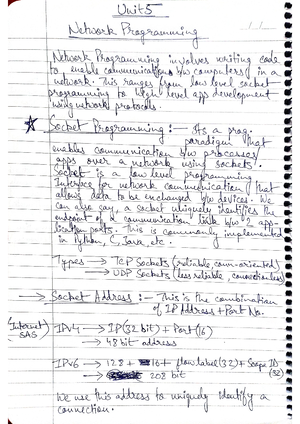 Unit 5
Network Programming
Network Programming involves writing code
to enable communication b/w computers in a
network. This ranges from low level socket
programming to high level app development
using network protocols.
Socket Programming :- Its a prog-
paradigm that
enables communication b/w processes/
apps over a network using sockets.
Socket is a low level programming
Interface for network communication that
allows data to be exchanged b/w devices. We
can also say, a socket uniquely identifies the
endpoint of a communication link b/w 2 app-
lication ports. This is commonly implemented
in Python, C, Java, etc.
Types → TCP Sockets (reliable conn-oriented)
→ UDP Sockets (less reliable, connectionless)
→ Socket Address :- This is the combination
of IP Address + Port No.
(Internet) IPv4 → IP (32 bit) + Port (16)
SAS → 48 bit address
IPv6 → 128 + 16 + flow label (32) + Scope ID
(32)
→ 208 bit
We use this address to uniquely identify a
connection.